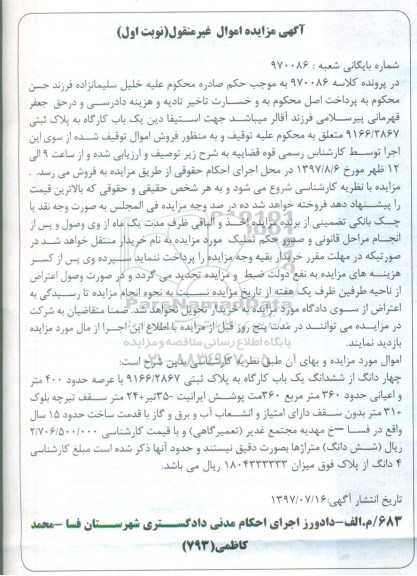 آگهی مزایده اموال غیرمنقول(نوبت اول)
شماره بایگانی شعبه : ۹۷۰۰۸۶
در پرونده کلاسه ۹۷۰۰۸۶ به موجب حکم صادره محکوم علیه خلیل سلیمانزاده فرزند حسن
محکوم به پرداخت اصل محکوم به و خسارت تاخیر تادیه و هزینه دادرسی و درحق جعفر
قهرمانی پیرسلامی فرزند آقالر میباشد جهت استیفا دین یک باب کارگاه به پلاک ثبتی
۹۱۶۶/۲۸۶۷ متعلق به محکوم علیه توقیف و به منظور فروش اموال توقیف شده از سوی این
اجرا توسط کارشناس رسمی قوه قضاییه به شرح زیر توصیف و ارزیابی شده و از ساعت ۹ الی
۱۲ ظهر مورخ ۱۳۹۷/۸/۶ در محل اجرای احکام حقوقی از طریق مزایده به فروش می رسد.
مزایده با نظریه کارشناسی شروع می شود و به هر شخص حقیقی و حقوقی که بالاترین قیمت
را پیشنهاد دهد فروخته خواهد شد ده در صد وجه مزایده فی المجلس به صورت وجه نقد یا
چک بانکی تضمینی از برنده مزایده اخذ و الباقی ظرف مدت یک ماه از وی وصول و پس از
انجام مراحل قانونی و صدور حکم تملیک مورد مزایده به نام خریدار منتقل خواهد شد در
صورتیکه در مهلت مقرر خریدار بقیه وجه مزایده را پرداخت ننماید سپرده وی پس از کسر
هزینه های مزایده به نفع دولت ضبط و مزایده تجدید می گردد و در صورت وصول اعتراض
از ناحیه طرفین ظرف یک هفته از تاریخ مزایده نسبت به نحوه انجام مزایده تا رسیدگی به
اعتراض از سوی دادگاه مورد مزایده به خریدار تحویل نخواهد شد. ضمنا متقاضیان به شرکت
در مزایده می توانند در مدت پنج روز قبل از مزایده با اطلاع این اجرا از مال مورد مزایده
بازدید نمایند.
اموال مورد مزایده و بهای آن طبق نظریه کارشناسی بدین شرح است:
چهار دانگ از ششدانگ یک باب کارگاه به پلاک ثبتی ۹۱۶۶/۲۸۶۷ با عرصه حدود ۴۰۰ متر
و اعیانی حدود ۳۶۰ متر مربع ۳۶۰مت پوشش ایرانیت -۳۵تیر+۲۴ متر سقف تیرچه بلوک
+۳۱ متر بدون سقف دارای امتیاز و انشعاب آب و برق و گاز با قدمت ساخت حدود ۱۵ سال
واقع در فسا -خ مهدیه مجتمع غدیر (تعمیرگاهی) و با قیمت کارشناسی ۲/۷۰۶/۵۰۰/۰۰۰
ریال (شش دانگ) متراژها بصورت دقیق نیستند و حدود آنها ذکر شده است مبلغ کارشناسی
۴ دانگ از پلاک فوق میزان ۱۸۰۴۳۳۳۳۳۳ ریال می باشد.
تاریخ انتشار آگهی:۱۳۹۷/۰۷/۱۶
۶۸۳/م.الف-دادورز اجرای احکام مدنی دادگستری شهرستان فسا -محمد
کاظمی(۷۹۳)
ParsNamadData
پایگاه اطلاع رسانی مناقصه و مزایده